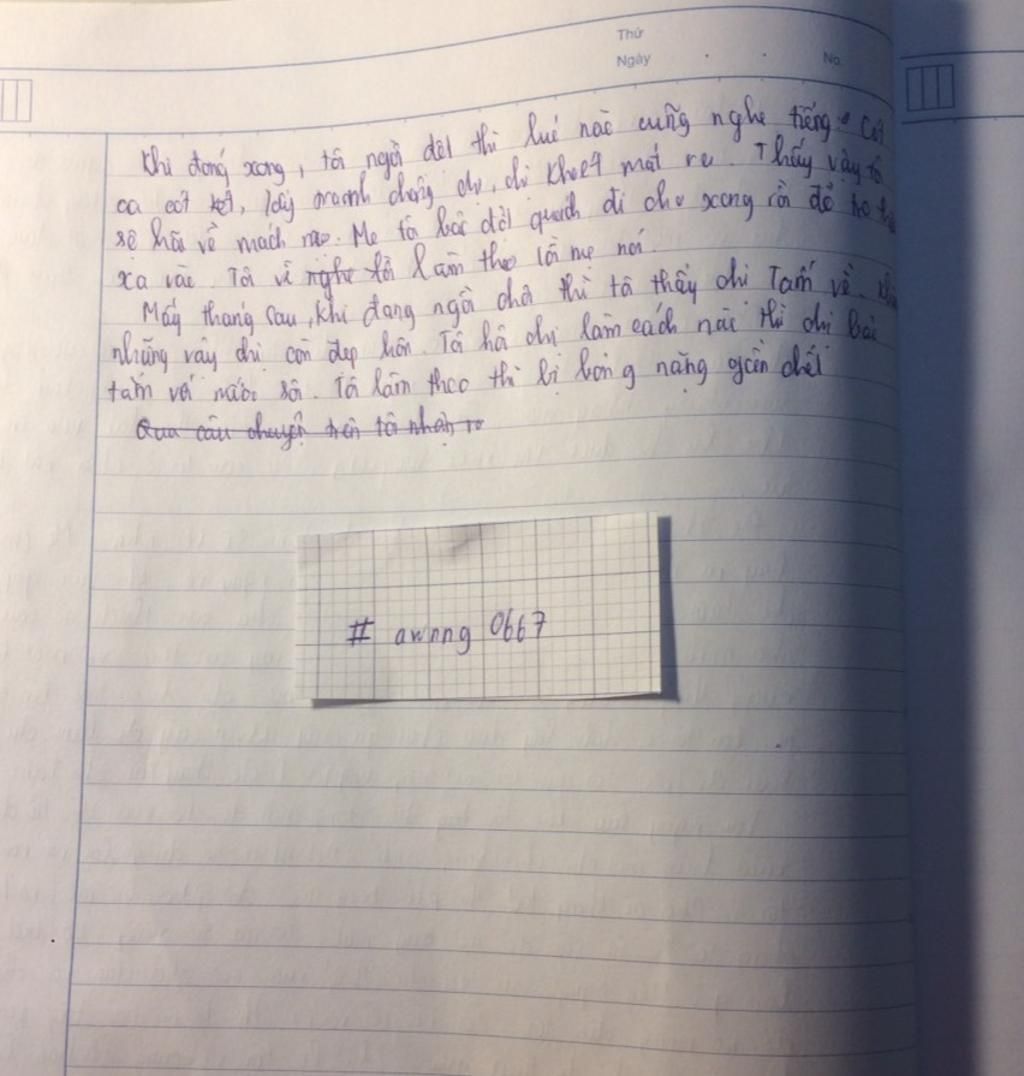 Thứ
Ngày
No.
Khi đóng xong, tôi ngồi dệt thì lúc nào cũng nghe tiếng cót
ca cót két, lấy tranh chồng chị, chị khoét mắt ra. Thấy vậy tô
sợ hãi về mách mẹ. Mẹ tôi bảo đốt quách đi cho xong rồi đổ tro
xa vào. Tôi về nghe lời làm theo lời mẹ nói.
Mấy tháng sau, khi đang ngồi chơi thì tô thấy chị Tấm về.
những vậy chị còn đẹp hơn. Tô hỏi chị làm cách nào thì chị bảo
tắm với nước sôi. Tô làm theo thì bị bỏng nặng gần chết
Qua câu chuyện trên tô nhận ra
# awnng 0667